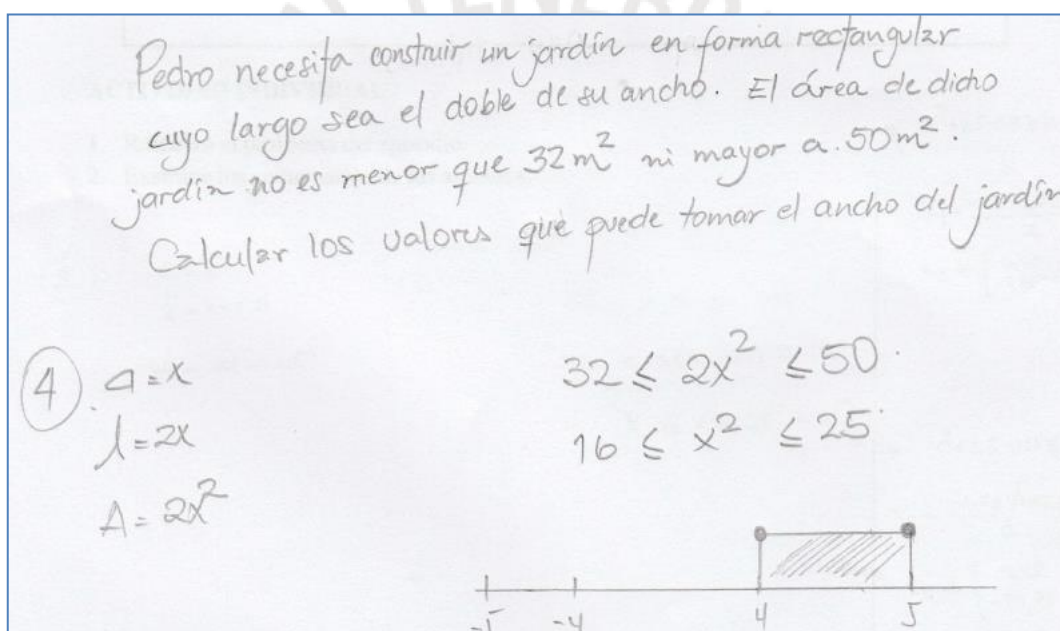 Pedro necesita construir un jardín en forma rectangular
cuyo largo sea el doble de su ancho. El área de dicho
jardín no es menor que 32m² ni mayor a 50m².
Calcular los valores que puede tomar el ancho del jardín
4
a = x
l = 2x
A = 2x²
32 ≤ 2x² ≤ 50
16 ≤ x² ≤ 25
-5 -4 4 5